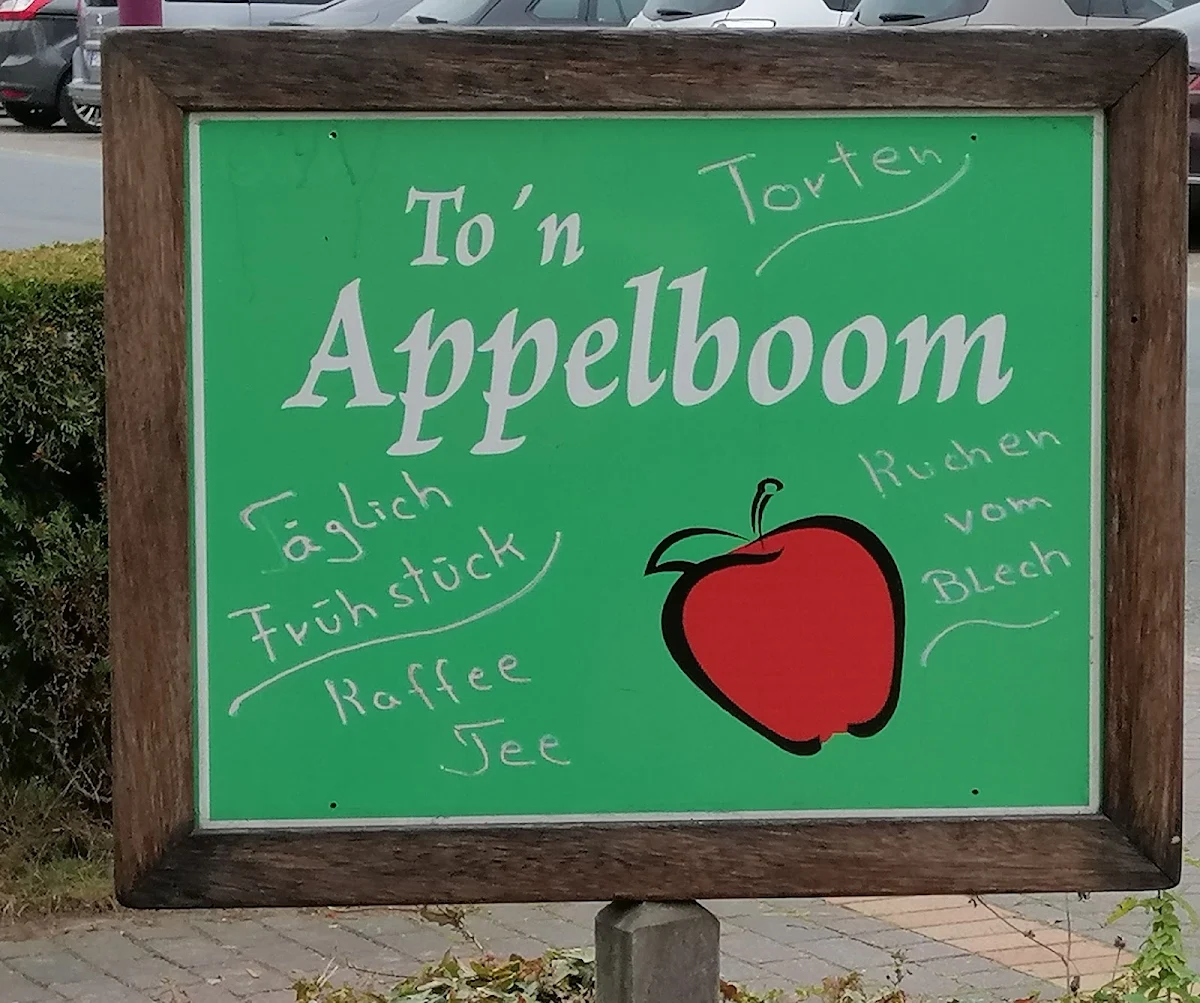 Torten
To´n
Appelboom
Täglich
Frühstück
Kaffee
Tee
Kuchen
vom
Blech